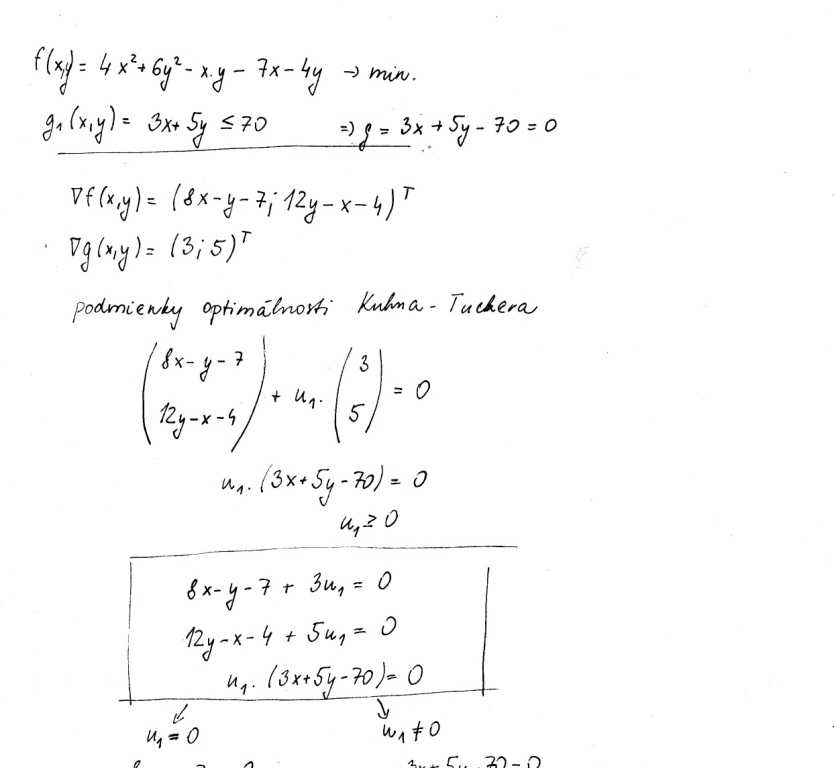 f(x,y) = 4x² + 6y² - x.y - 7x - 4y → min.
g₁(x,y) = 3x + 5y ≤ 70 => g = 3x + 5y - 70 = 0
∇f(x,y) = (8x - y - 7; 12y - x - 4)ᵀ
∇g(x,y) = (3; 5)ᵀ
podmienky optimálnosti Kuhna - Tuckera
(8x - y - 7
12y - x - 4) + u₁. (3
5) = 0
u₁. (3x + 5y - 70) = 0
u₁ ≥ 0
8x - y - 7 + 3u₁ = 0
12y - x - 4 + 5u₁ = 0
u₁. (3x + 5y - 70) = 0
↙ ↘
u₁ = 0 u₁ ≠ 0
3x + 5y - 70 = 0